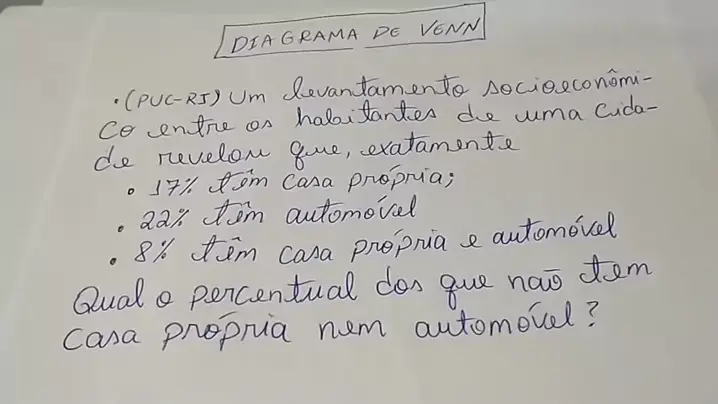 DIAGRAMA DE VENN
• (PUC-RJ) Um levantamento socioeconômi-
co entre os habitantes de uma cida-
de revelou que, exatamente
• 17% têm casa própria;
• 22% têm automóvel
• 8% têm casa própria e automóvel
Qual o percentual dos que não tem
casa própria nem automóvel?